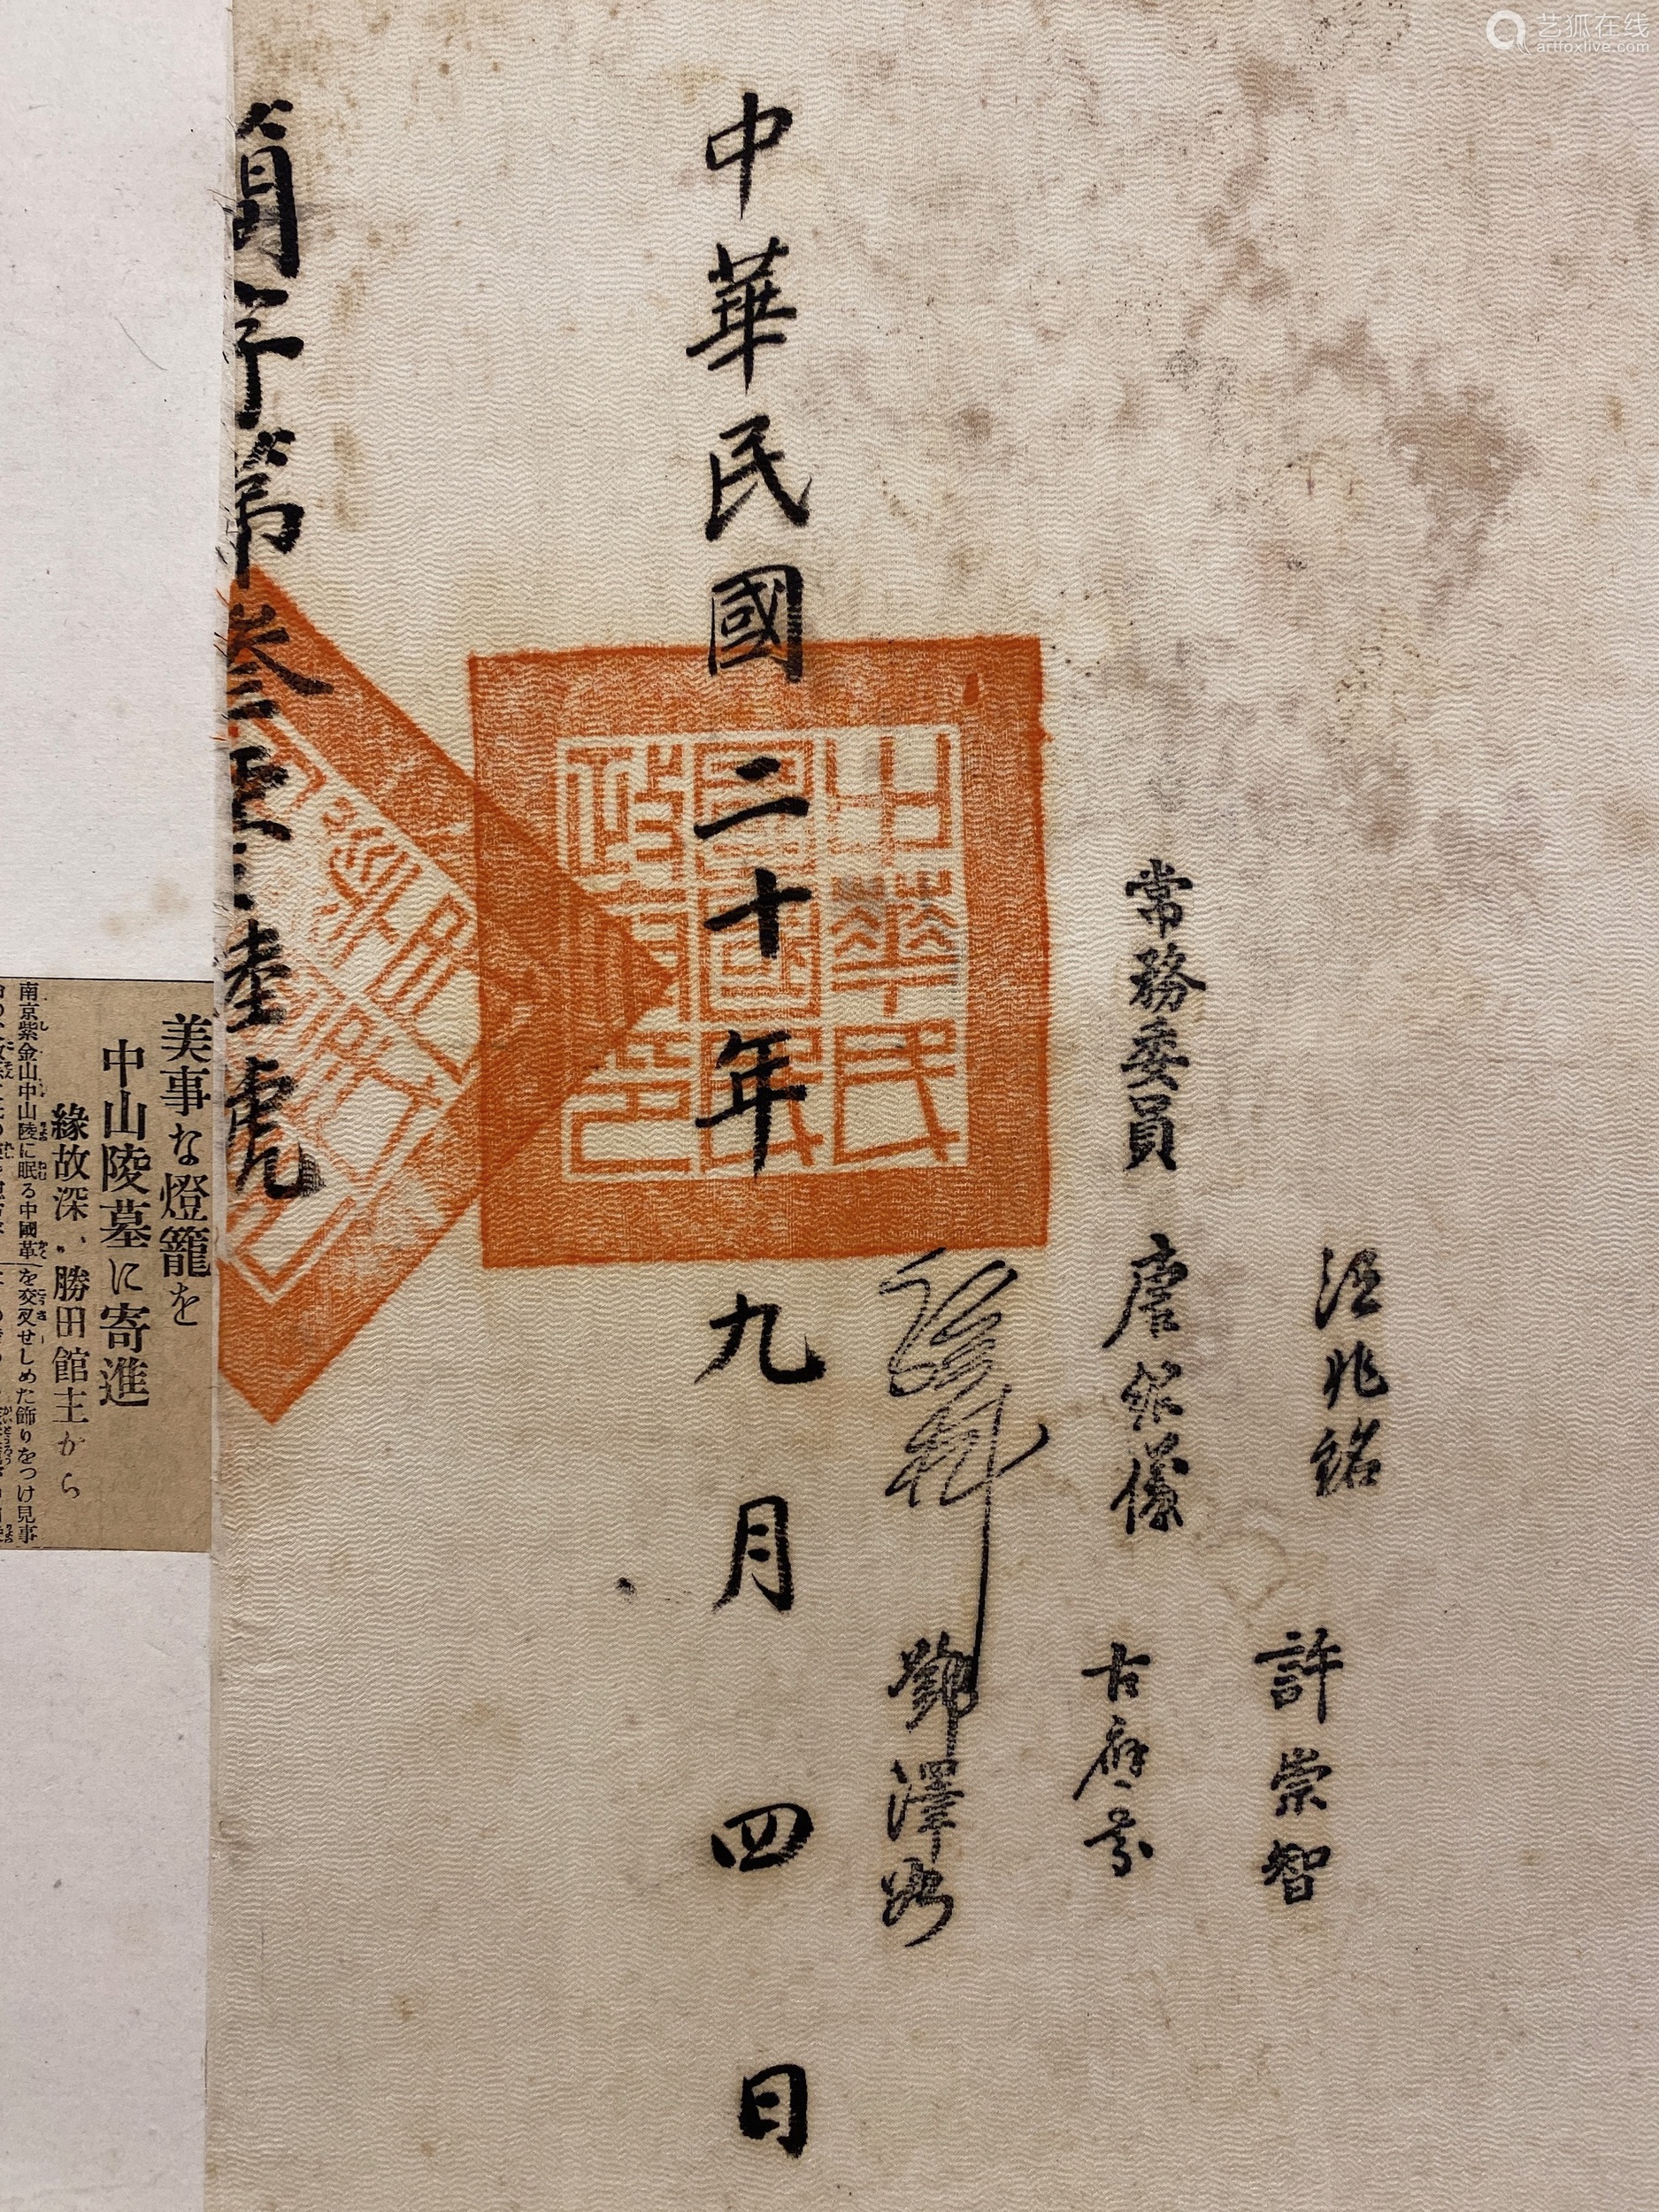 艺狐在线
artfoxlive.com
汪兆銘
許崇智
常務委員 唐紹儀
古應芬
孫科
鄧澤如
中華民國二十年九月四日
中華民
國國民
政府印
簡字第叁
陸號
美事な燈籠を
中山陵墓に寄進
緣故深い勝田館主から
南京紫金山中山陵に眠る中國革
を交叉せしめた飾りをつけ見事